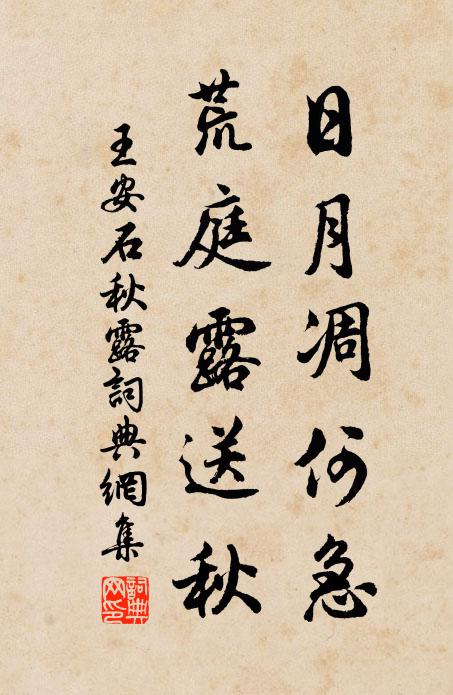 日月凋何急
荒庭露送秋
王安石秋露詞典網集
詞典網印